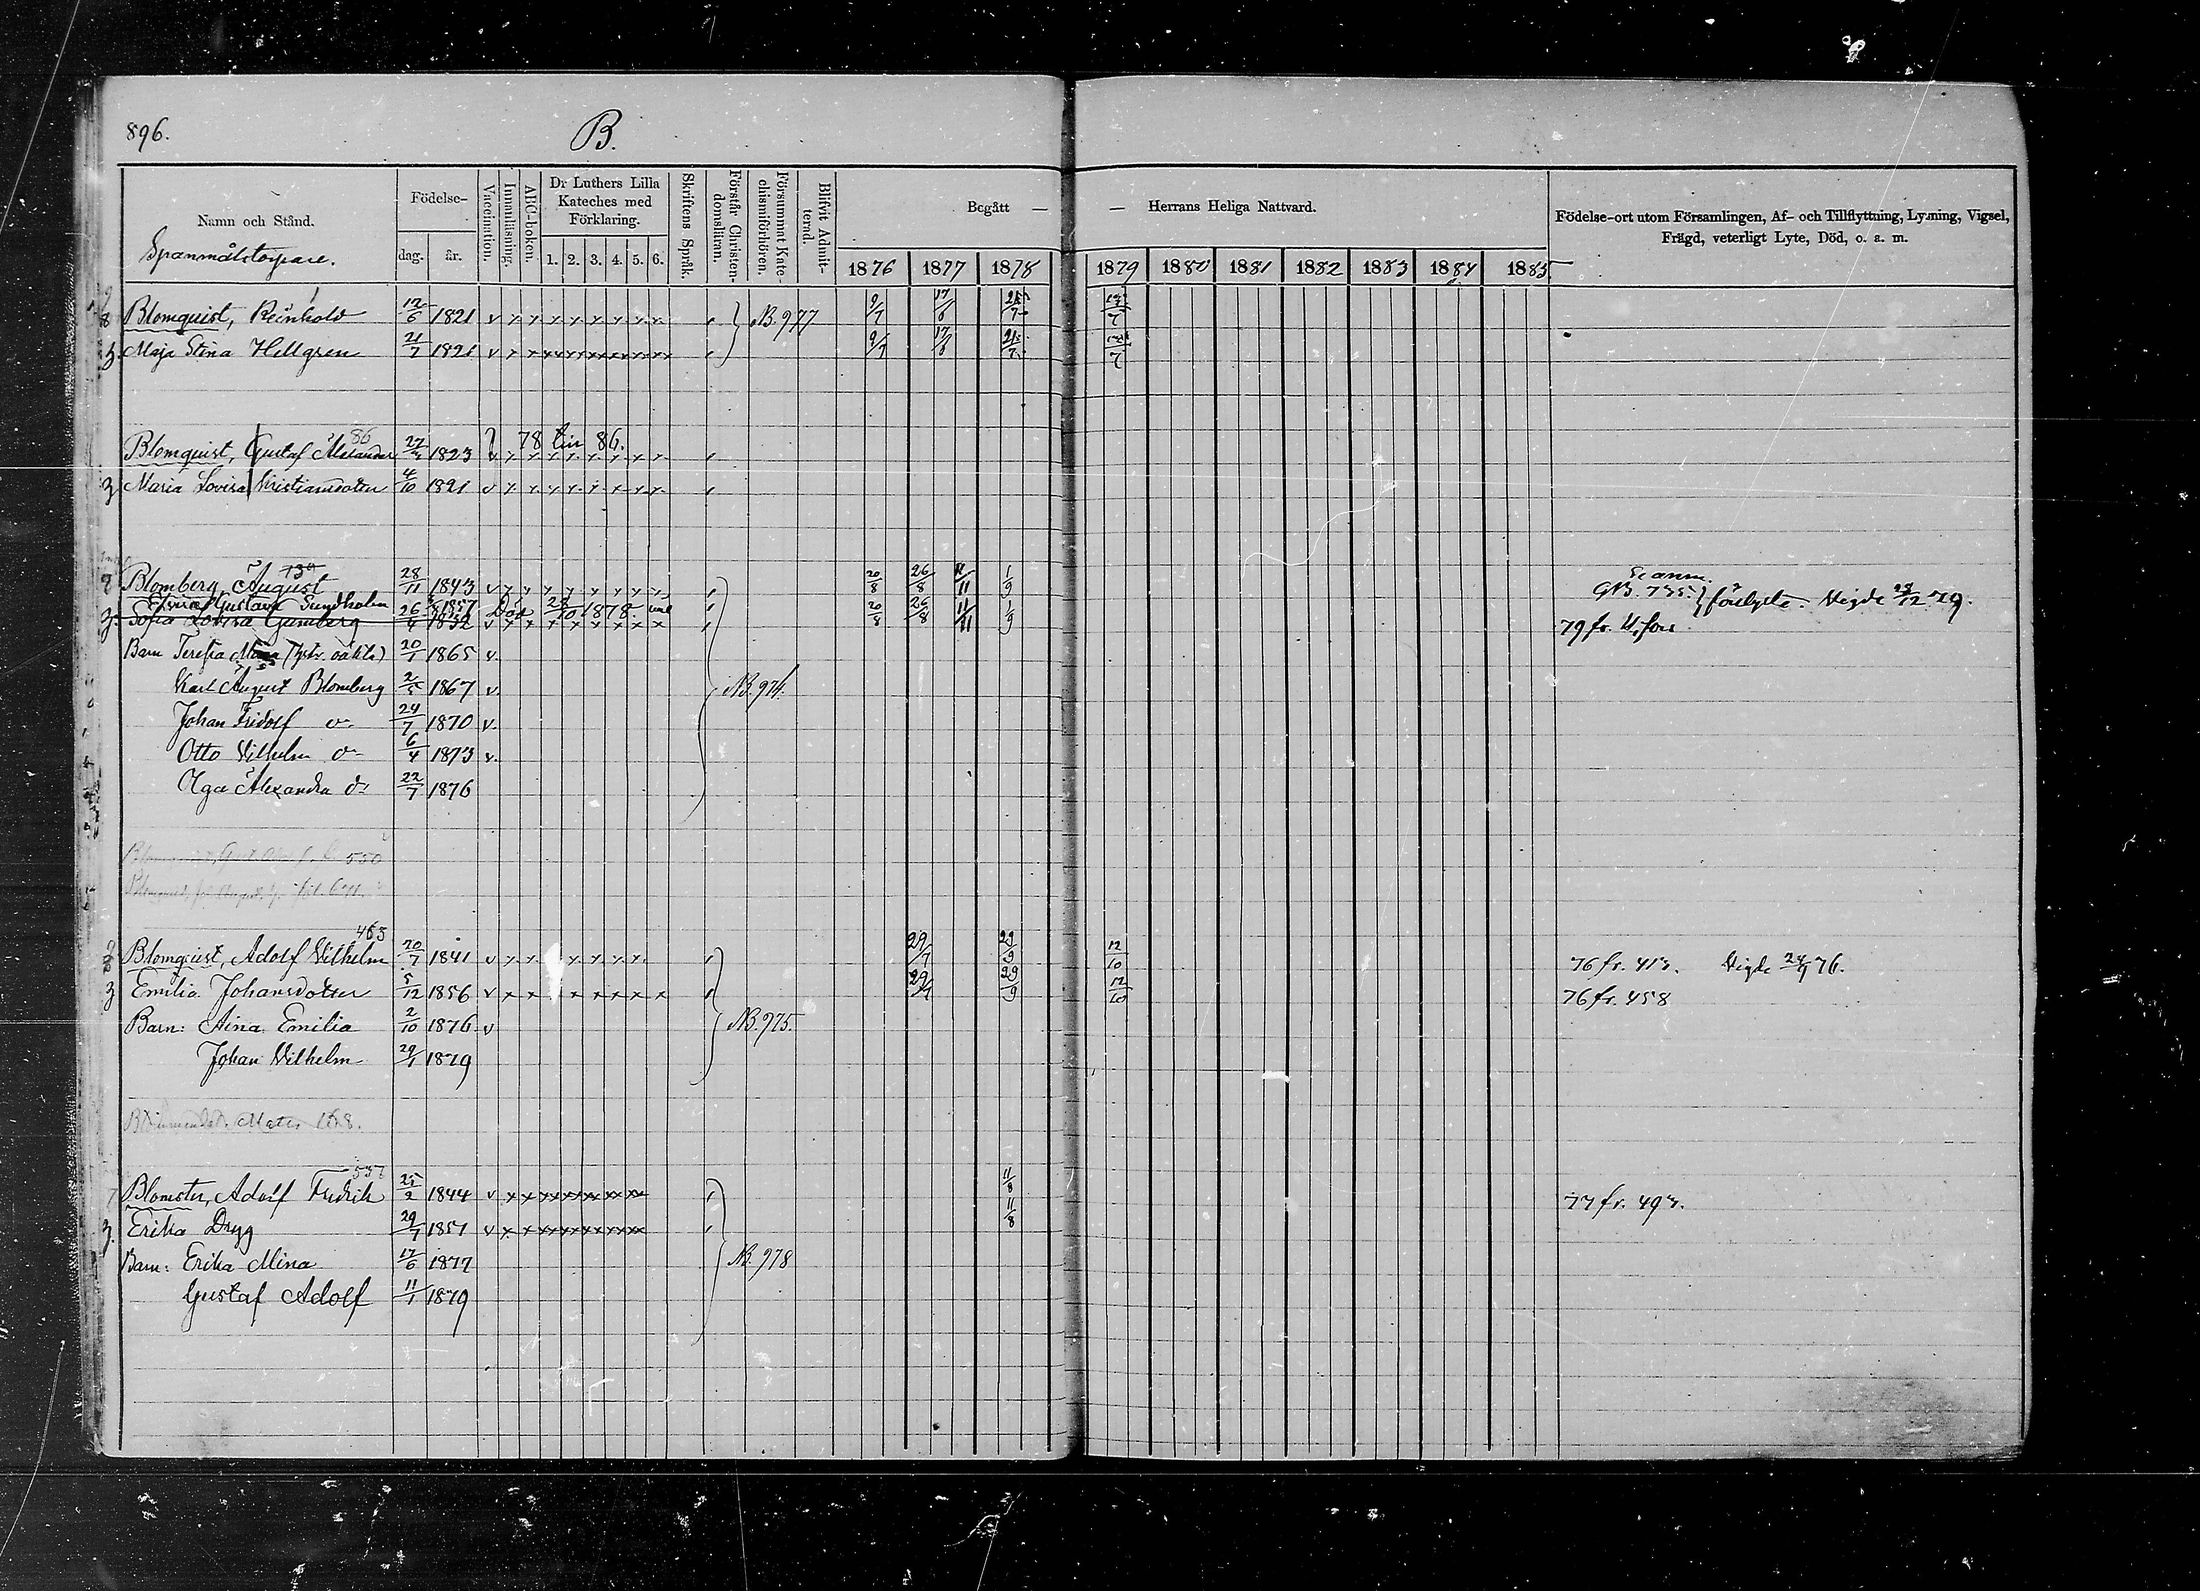 896.
B.
Namn och Stånd.
Spanmålstorpare.
Födelse-
dag.
år.
Vaccination.
Innanläsning.
ABC-boken.
Dr Luthers Lilla Kateches med Förklaring.
1. 2. 3. 4. 5. 6.
Skriftens Språk.
Förstår Christendomsläran.
Försummat Katechismiförhören.
Blifvit Admitterad.
Begått — — Herrans Heliga Nattvard.
1876 1877 1878 1879 1880 1881 1882 1883 1884 1885
Födelse-ort utom Församlingen, Af- och Tillflyttning, Lysning, Vigsel, Frägd, veterligt Lyte, Död, o. a. m.
8 Blomquist, Reinhold 12/6 1821 v N.B. 977 9/7 17/6
3. Maja Stina Hellgren 21/7 1821 v 9/7 17/6
86
78 86.
Blomquist, Gustaf Alexander 1823 v
3 Maria Lovisa Kristiansdotter 4/10 1821 v
Blomberg, August 28/11 1843 v 20/8 26/8 11/11 1/9
Gustava Sundholm 1857 Död 1878.
3. Sofia Lovisa Gumberg 26/4 1832 v 20/8 26/8 11/11 1/9 79 fr. H:fors
Vigde 12 79.
Barn Teresia 20/1 1865 v.
Karl August Blomberg 2/5 1867 v. NB. 974.
Johan Fridolf d:o 24/7 1870 v.
Otto Vilhelm d:o 6/4 1873 v.
Olga Alexandra d:o 22/7 1876
550
463
Blomquist, Adolf Vilhelm 20/7 1841 v 29/7 29/9 12/10 76 fr. 413. Vigde 24/9 76.
3 Emilia Johansdotter 5/12 1856 v 29/7 29/9 12/10 76 fr. 458
Barn: Aina Emilia 2/10 1876 v NB. 975.
Johan Vilhelm 29/1 1879
Mats 168.
537
Blomster, Adolf Fredrik 25/2 1844 v 11/8 77 fr. 493.
3. Erika Drygg 29/7 1857 v 11/8
Barn: Erika Mina 17/6 1877 NB. 978
Gustaf Adolf 11/1 1879